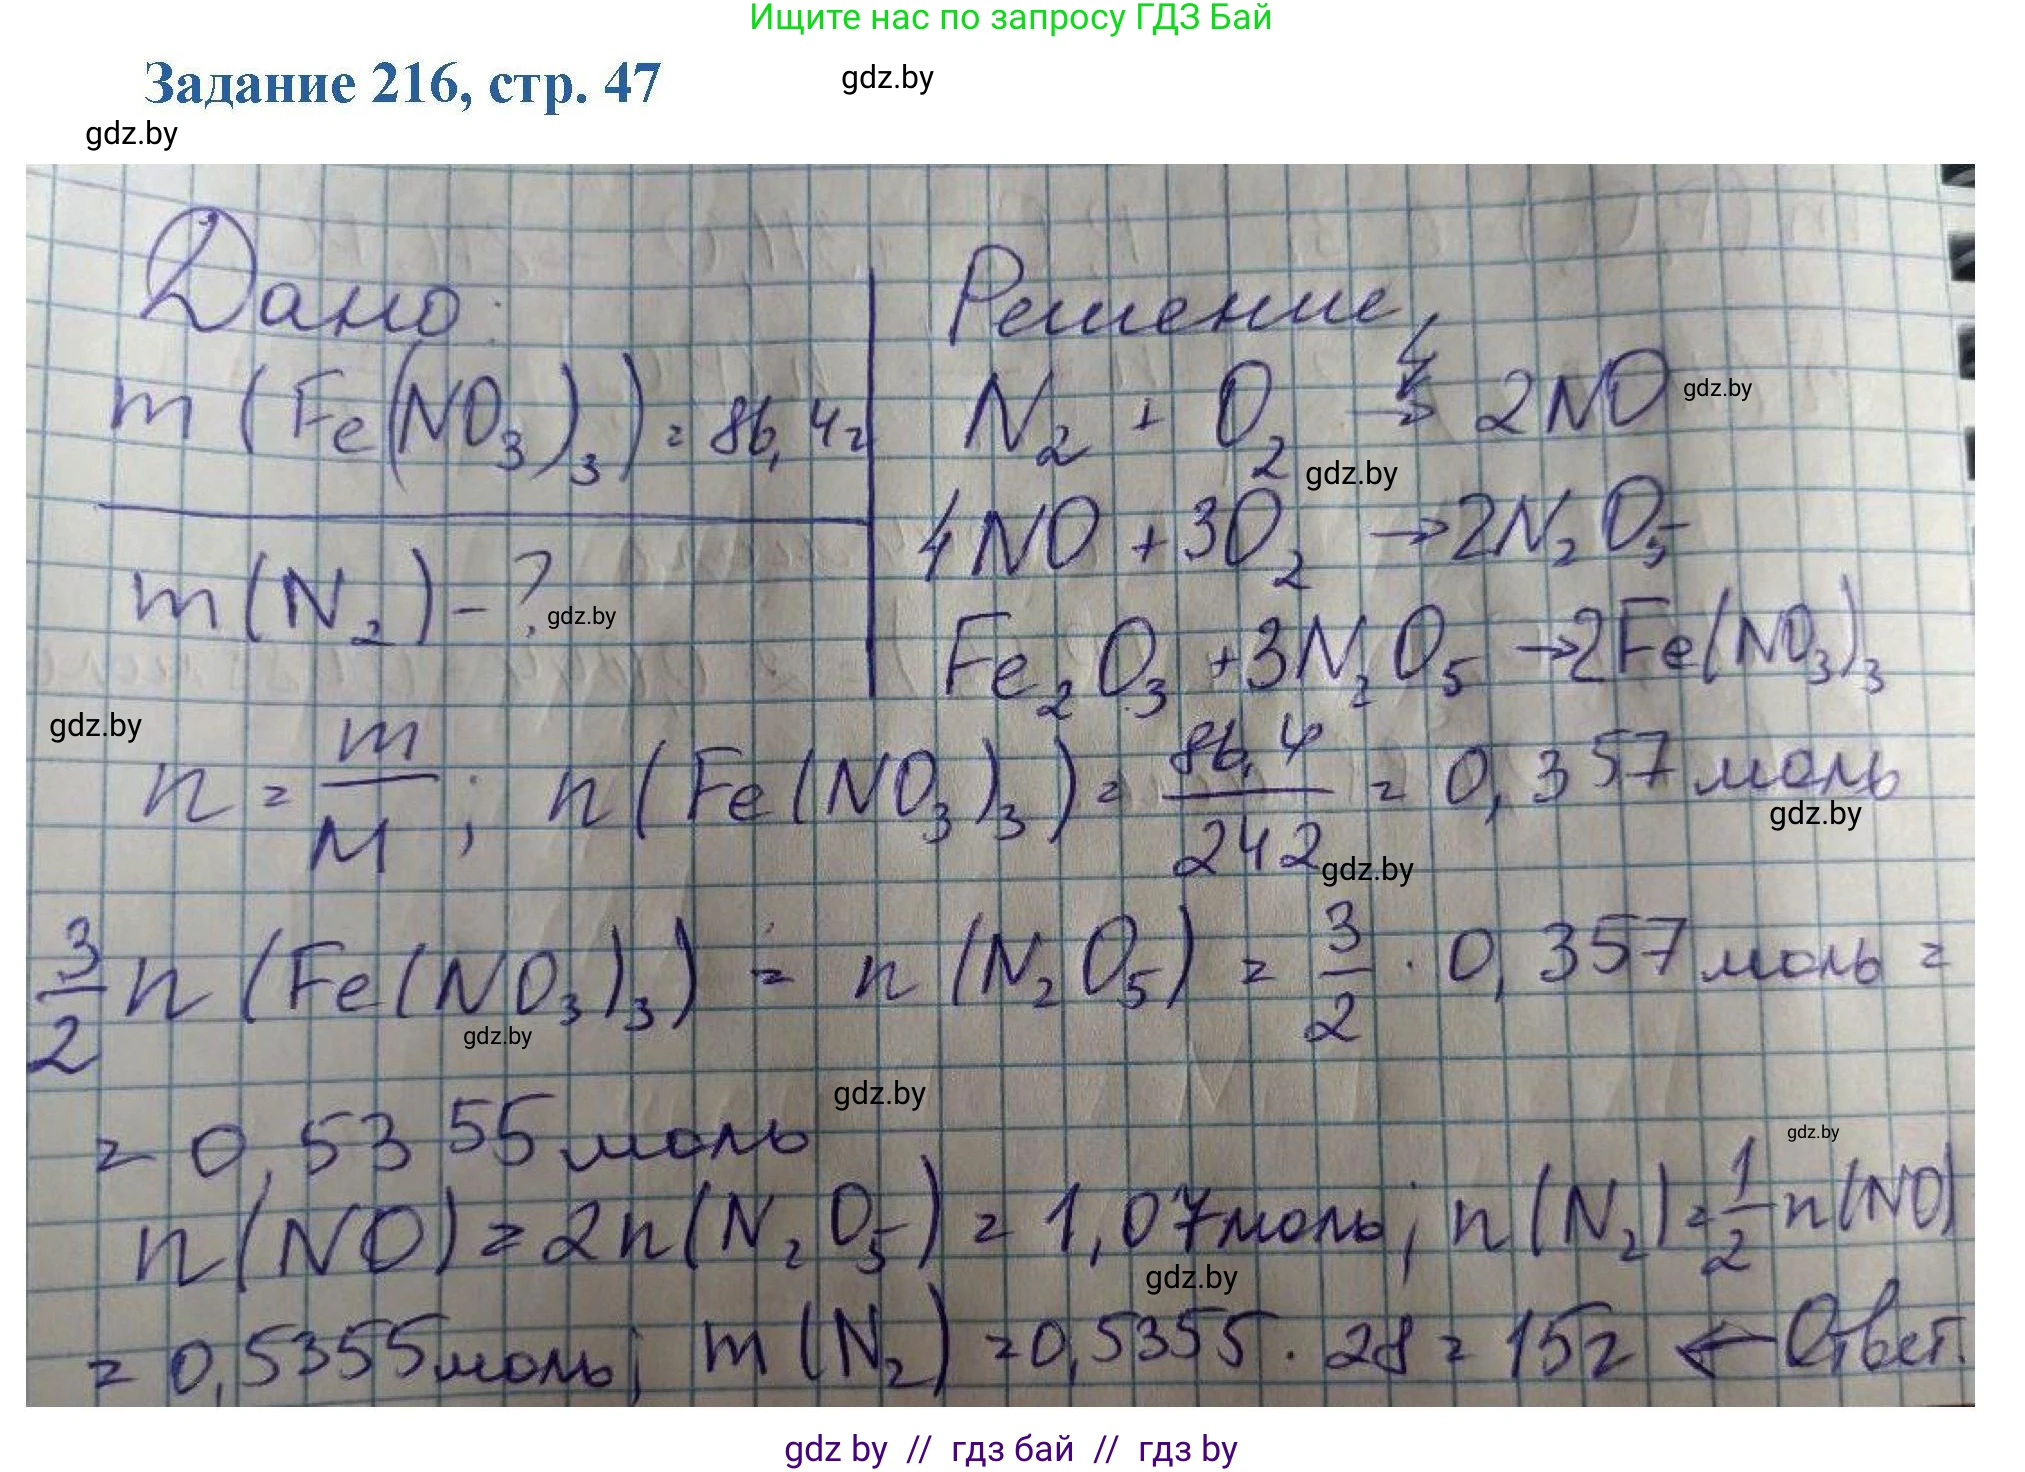 Ищите нас по запросу ГДЗ Бай
Задание 216, стр. 47
gdz.by
gdz.by
Дано:
m(Fe(NO₃)₃) = 86,4 г
m(N₂) - ?
gdz.by
Решение
N₂ + O₂ → 2NO
gdz.by
gdz.by
4NO + 3O₂ → 2N₂O₅
Fe₂O₃ + 3N₂O₅ → 2Fe(NO₃)₃
gdz.by
n = m/M ; n(Fe(NO₃)₃) = 86,4/242 = 0,357 моль
gdz.by
gdz.by
3/2 n(Fe(NO₃)₃) = n(N₂O₅) = 3/2 · 0,357 моль =
gdz.by
gdz.by
= 0,5355 моль
gdz.by
n(NO) = 2n(N₂O₅) = 1,07 моль; n(N₂) = 1/2 n(NO)
gdz.by
= 0,5355 моль; m(N₂) = 0,5355 · 28 = 15 г ← Ответ.
gdz by // гдз бай // гдз by